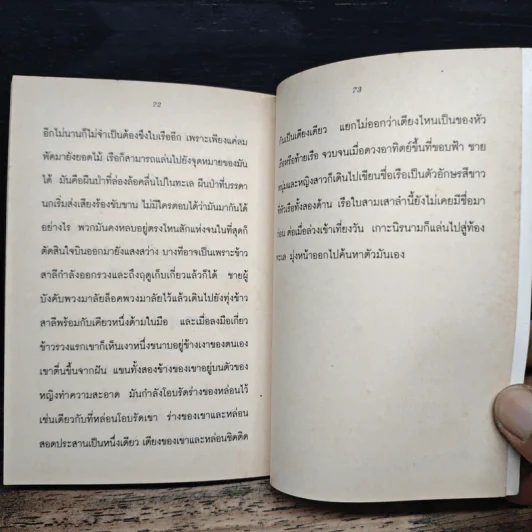 72
อีกไม่นานก็ไม่จำเป็นต้องขึงใบเรืออีก เพราะเพียงแค่ลม
พัดมายังยอดไม้ เรือก็สามารถแล่นไปยังจุดหมายของมัน
ได้ มันคือผืนป่าที่ล่องลัดคลื่นไปในทะเล ผืนป่าที่บรรดา
นกเริ่มส่งเสียงร้องขับขาน ไม่มีใครตอบได้ว่ามันมากันได้
อย่างไร พวกมันคงหลบอยู่ตรงไหนสักแห่งจนในที่สุดก็
ตัดสินใจบินออกมายังแสงสว่าง บางทีอาจเป็นเพราะข้าว
สาลีกำลังออกรวงและถึงฤดูเก็บเกี่ยวแล้วก็ได้ ชายผู้
บังคับพวงมาลัยล็อคพวงมาลัยไว้แล้วเดินไปยังทุ่งข้าว
สาลีพร้อมกับเคียวหนึ่งด้ามในมือ และเมื่อลงมือเกี่ยว
ข้าวรวงแรกเขาก็เห็นเงาหนึ่งขนาบอยู่ข้างเงาของตนเอง
เขาตื่นขึ้นจากฝัน แขนทั้งสองข้างของเขาอยู่บนตัวของ
หญิงทำความสะอาด มันกำลังโอบรัดร่างของหล่อนไว้
เช่นเดียวกับที่หล่อนโอบรัดเขา ร่างของเขาและหล่อน
สอดประสานเป็นหนึ่งเดียว เตียงของเขาและหล่อนชิดติด
73
กันเป็นเตียงเดียว แยกไม่ออกว่าเตียงไหนเป็นของหัว
เรือหรือท้ายเรือ จวบจนเมื่อดวงอาทิตย์ขึ้นที่ขอบฟ้า ชาย
หนุ่มและหญิงสาวก็เดินไปเขียนชื่อเรือเป็นตัวอักษรสีขาว
ที่หัวเรือทั้งสองด้าน เรือใบสามเสาลำนี้ยังไม่เคยมีชื่อมา
ก่อน ต่อเมื่อล่วงเข้าเที่ยงวัน เกาะนิรนามก็แล่นไปสู่ท้อง
ทะเล มุ่งหน้าออกไปค้นหาตัวมันเอง